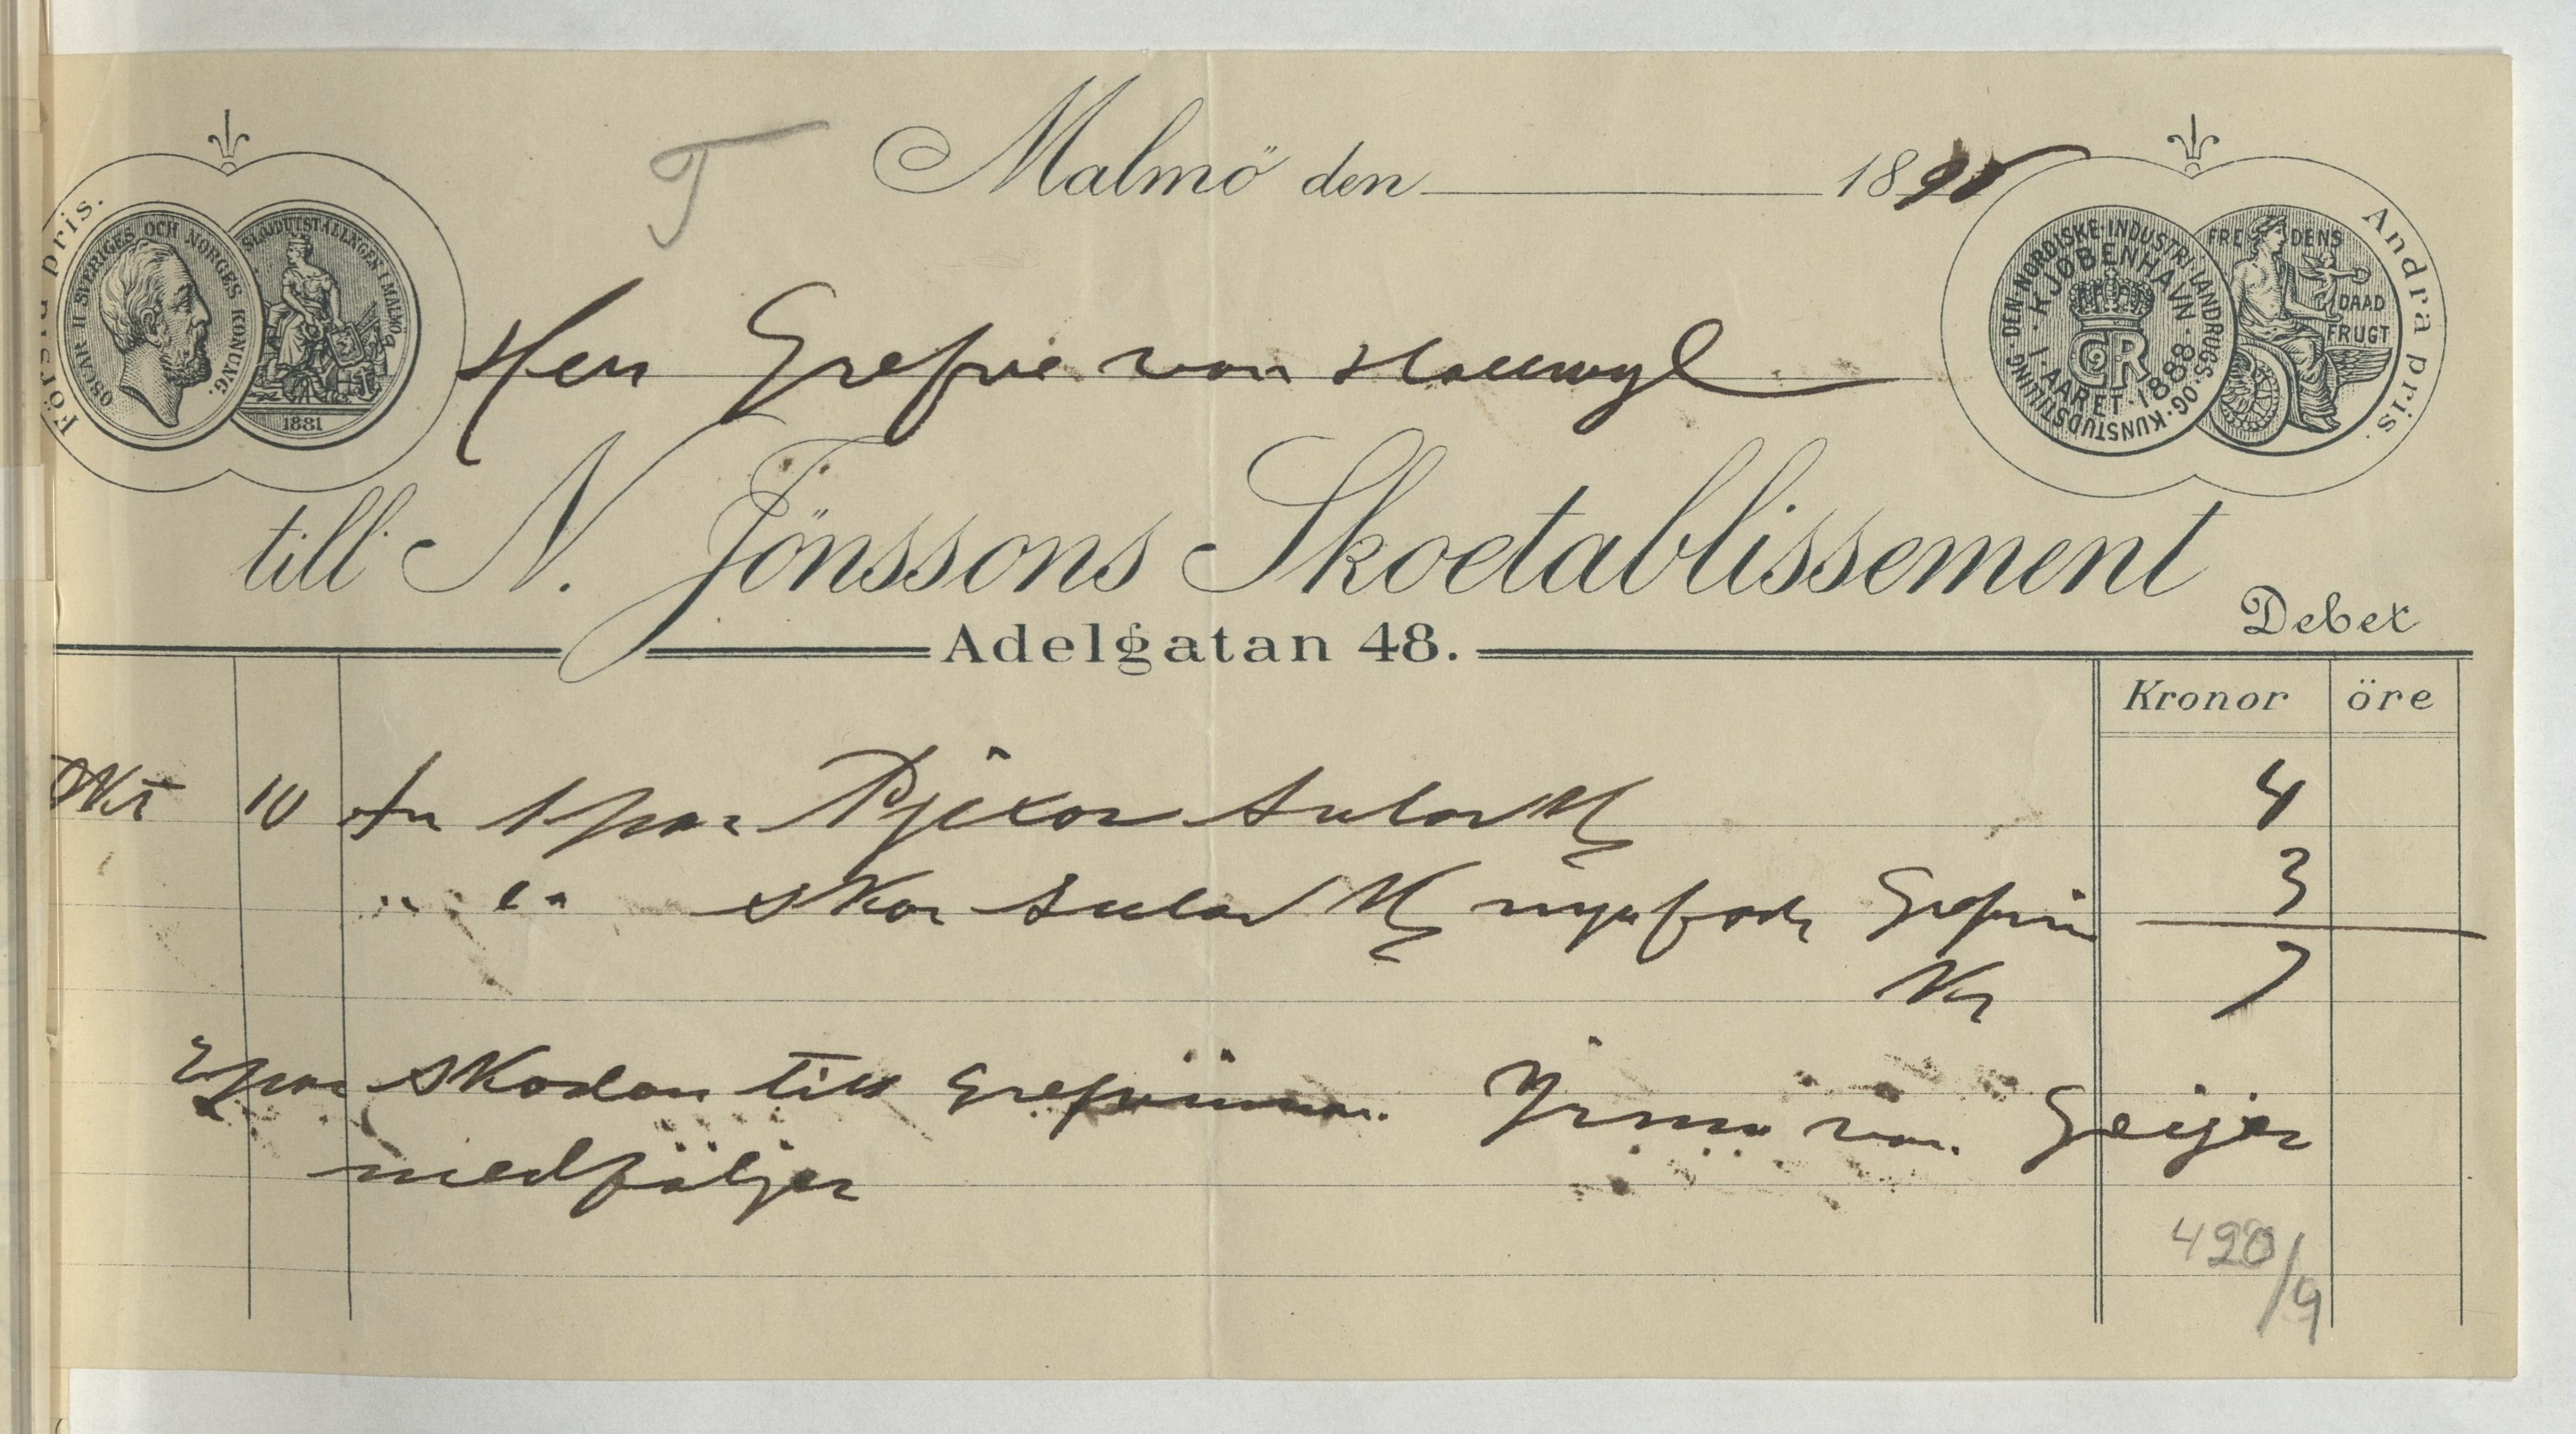 T
Malmö den 1898
Första pris.
OSCAR II SVERIGES OCH NORGES KONUNG.
SLÖJDUTSTÄLLNGEN I MALMÖ
1881
DEN NORDISKE INDUSTRI LANDBRUGS OG KUNSTUDSTILLING
KJØBENHAVN
I AARET 1888
FREDENS DAAD FRUGT
Andra pris.
Herr Grefve von Hallwyl
till N. Jönssons Skoetablissement
Debet
Adelgatan 48.
Kronor öre
Okt 10 An 1 par Pjexor sulor 4
" 1 " skor sulor 3
Kr 7
2 par skodon till Grefvinnan Irma von Geijer
medföljer
420/9